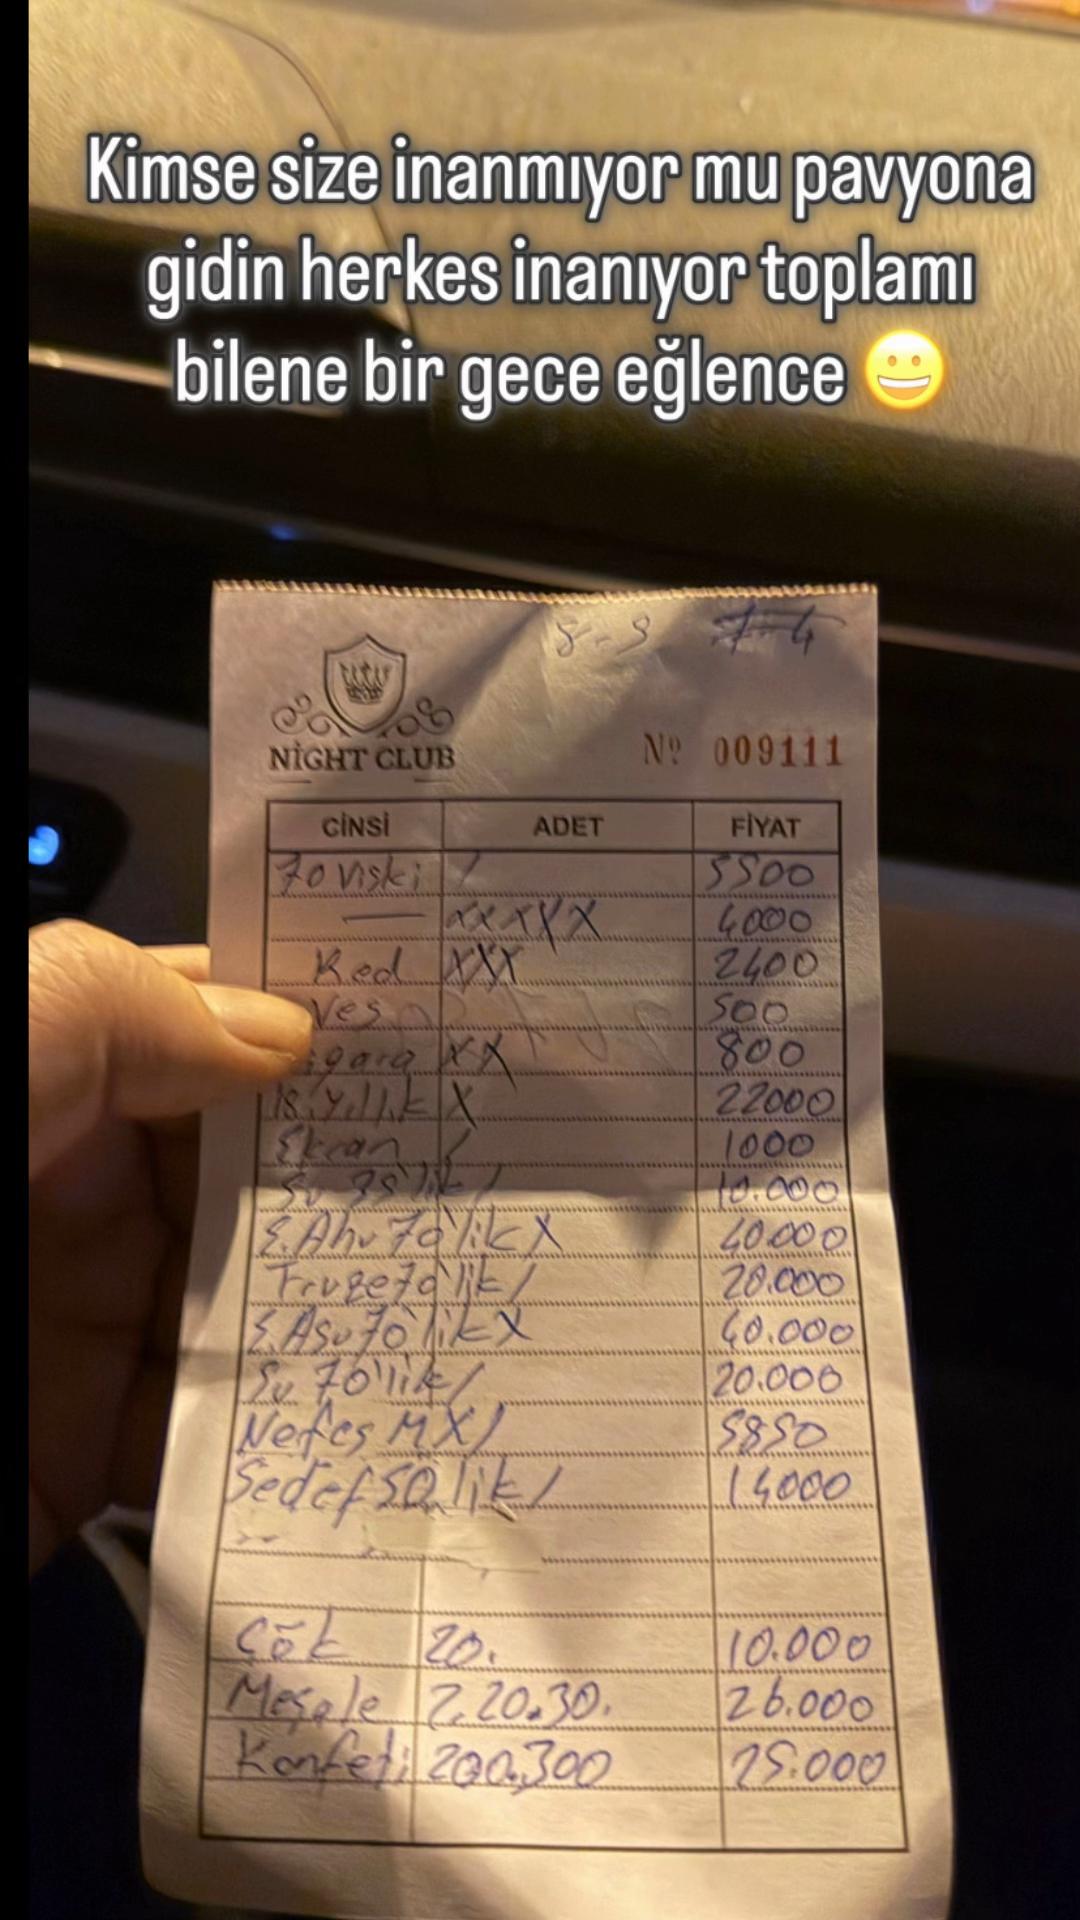 Kimse size inanmıyor mu pavyona
gidin herkes inanıyor toplamı
bilene bir gece eğlence 😀
8-9 7-4
NİGHT CLUB
Nº 009111
CİNSİ ADET FİYAT
70 viski / 5500
— xxxxx 4000
Red xxx 2400
Ves 500
igara xx 800
18 Yıllık X 22000
Ekran / 1000
Su 35'lik / 10.000
E.Ahu 70'lik X 40.000
70'lik / 20.000
E.Asu 70'lik X 40.000
Su 70'lik / 20.000
Nefes MX / 5850
Sedef 50.lik / 14000
Çök 20. 10.000
Meşale 2.20.30. 26.000
Konfeti 200.300 25.000